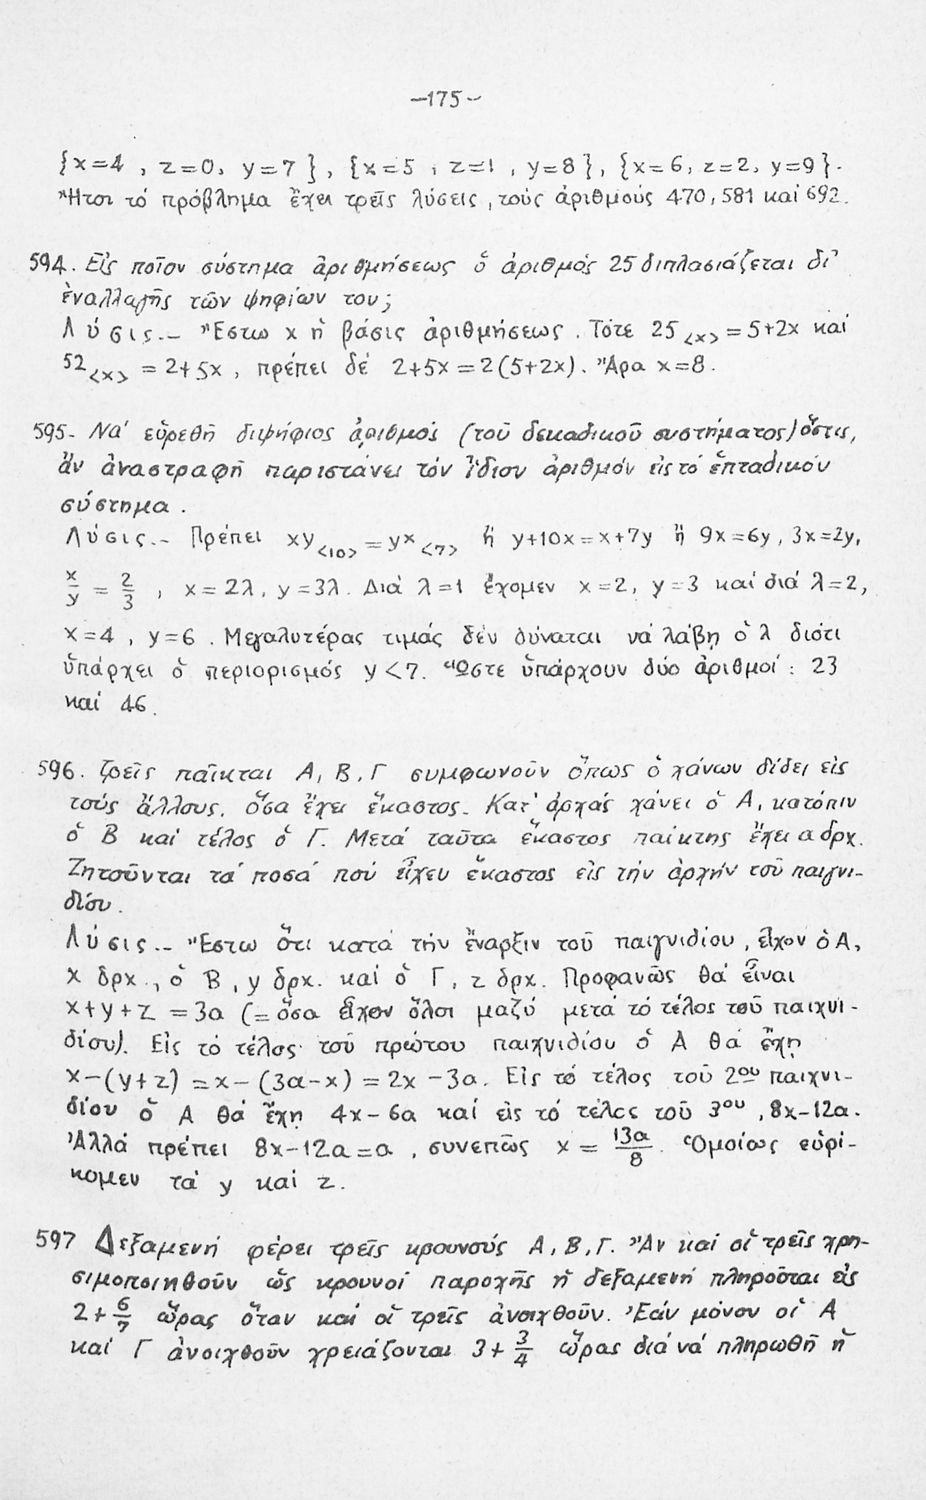 -175-
{x=4 , z=0, y=7 }, {x=5 , z=1 , y=8}, {x=6, z=2, y=9}.
Ἤτοι τό πρόβλημα ἔχει τρεῖς λύσεις , τούς ἀριθμούς 470, 581 καί 692.
594. Εἰς ποῖον σύστημα ἀριθμήσεως ὁ ἀριθμός 25 διπλασιάζεται δι'
ἐναλλαγῆς τῶν ψηφίων του;
Λύσις.- Ἔστω x ἡ βάσις ἀριθμήσεως . Τότε 25<x> = 5+2x καί
52<x> = 2+5x , πρέπει δέ 2+5x = 2(5+2x). Ἄρα x=8.
595- Νά εὑρεθῆ διψήφιος ἀριθμός (τοῦ δεκαδικοῦ συστήματος) ὅστις,
ἄν ἀναστραφῆ παριστάνει τόν ἴδιον ἀριθμόν εἰς τό ἑπταδικόν
σύστημα .
Λύσις.- Πρέπει xy<10> = yx<7> ἤ y+10x = x+7y ἤ 9x=6y, 3x=2y,
x/y = 2/3 , x=2λ, y=3λ. Διά λ=1 ἔχομεν x=2, y=3 καί διά λ=2,
x=4 , y=6 . Μεγαλυτέρας τιμάς δέν δύναται νά λάβῃ ὁ λ διότι
ὑπάρχει ὁ περιορισμός y<7. Ὥστε ὑπάρχουν δύο ἀριθμοί : 23
καί 46.
596. Τρεῖς παῖκται Α, Β, Γ συμφωνοῦν ὅπως ὁ χάνων δίδει εἰς
τούς ἄλλους, ὅσα ἔχει ἕκαστος. Κατ' ἀρχάς χάνει ὁ Α, κατόπιν
ὁ Β καί τέλος ὁ Γ. Μετά ταῦτα ἕκαστος παίκτης ἔχει α δρχ.
Ζητοῦνται τά ποσά πού εἶχεν ἕκαστος εἰς τήν ἀρχήν τοῦ παιγνι-
δίου.
Λύσις.- Ἔστω ὅτι κατά τήν ἔναρξιν τοῦ παιγνιδίου , εἶχον ὁ Α,
x δρχ., ὁ Β, y δρχ. καί ὁ Γ, z δρχ. Προφανῶς θά εἶναι
x+y+z = 3α (= ὅσα εἶχον ὅλοι μαζύ μετά τό τέλος τοῦ παιχνι-
δίου). Εἰς τό τέλος τοῦ πρώτου παιχνιδίου ὁ Α θά ἔχῃ
x-(y+z) = x-(3α-x) = 2x -3α. Εἰς τό τέλος τοῦ 2ου παιχνι-
δίου ὁ Α θά ἔχῃ 4x-6α καί εἰς τό τέλος τοῦ 3ου , 8x-12α.
Ἀλλά πρέπει 8x-12α=α , συνεπῶς x = 13α/8. Ὁμοίως εὑρί-
κομεν τά y καί z.
597 Δεξαμενή φέρει τρεῖς κρουνούς Α, Β, Γ. Ἄν καί οἱ τρεῖς χρη-
σιμοποιηθοῦν ὡς κρουνοί παροχῆς ἡ δεξαμενή πληροῦται εἰς
2+6/7 ὥρας ὅταν καί οἱ τρεῖς ἀνοιχθοῦν. Ἐάν μόνον οἱ Α
καί Γ ἀνοιχθοῦν χρειάζονται 3+3/4 ὥρας διά νά πληρωθῆ ἡ